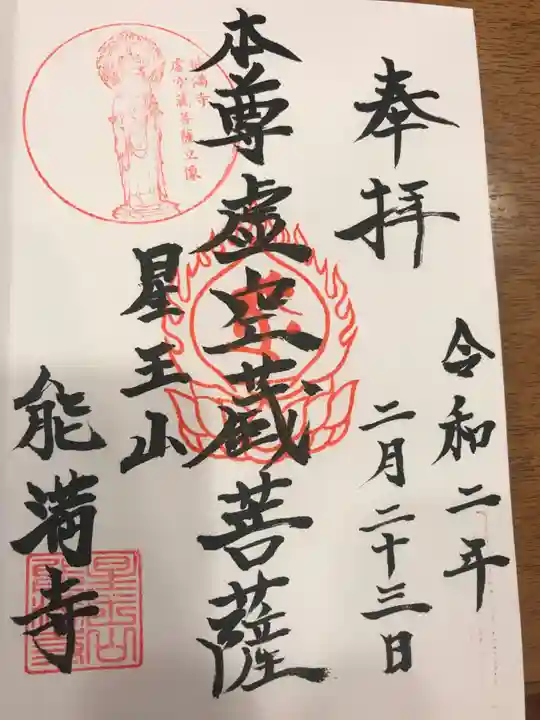 奉拝
令和二年
二月二十三日
本尊虚空蔵菩薩
能満寺
虚空蔵菩薩立像
星王山
能満寺
星王山
能満寺